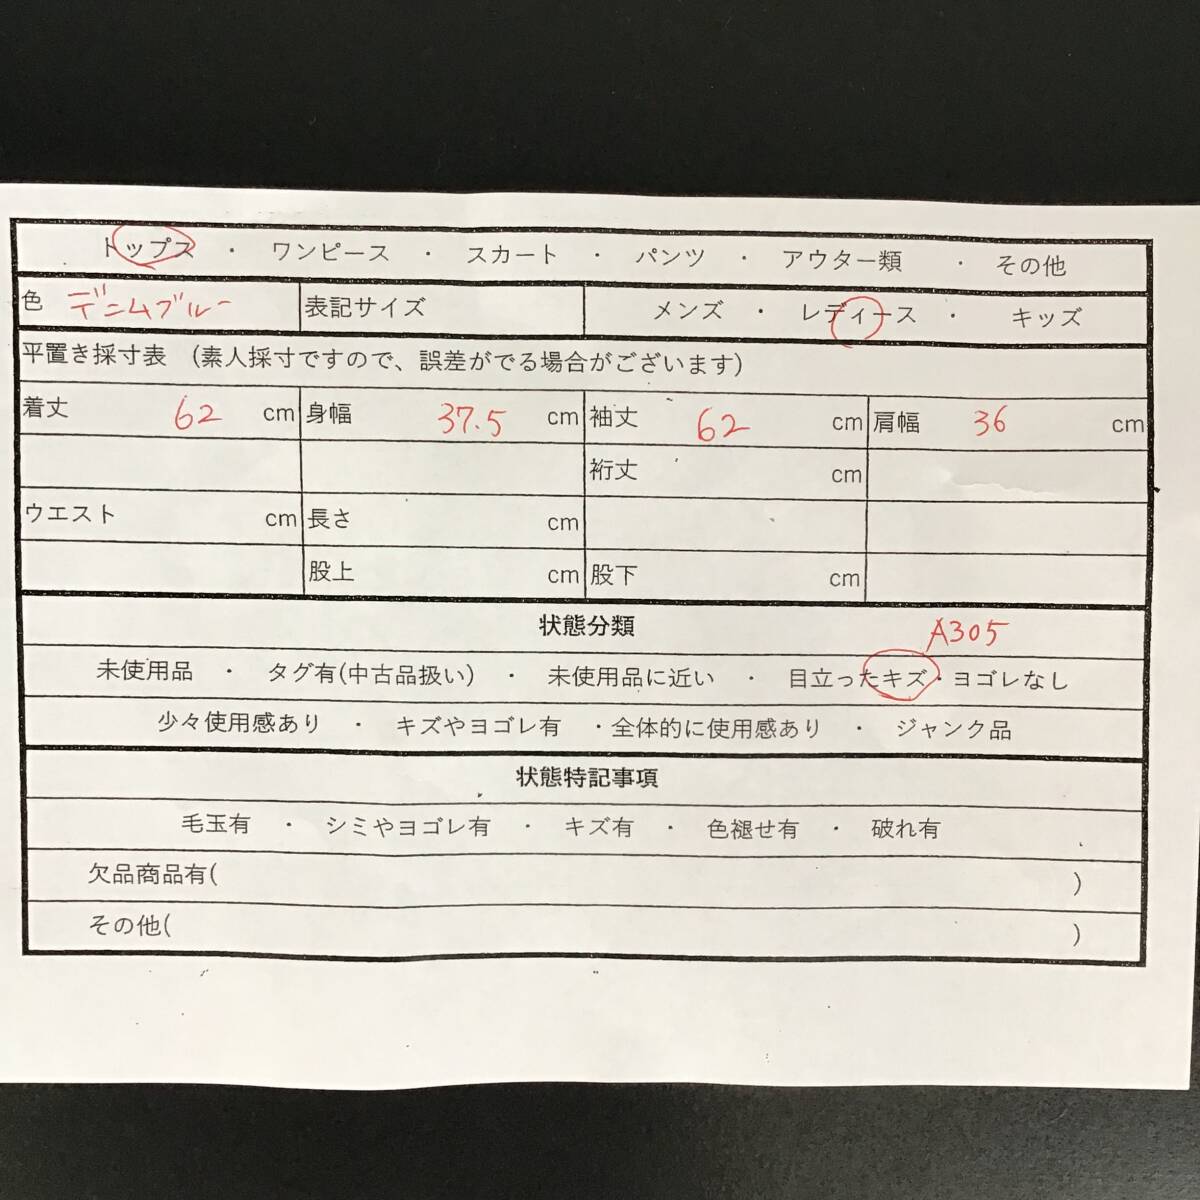 トップス ・ ワンピース ・ スカート ・ パンツ ・ アウター類 ・ その他
色 デニムブルー 表記サイズ メンズ ・ レディース ・ キッズ
平置き採寸表 (素人採寸ですので、誤差がでる場合がございます)
着丈 62 cm 身幅 37.5 cm 袖丈 62 cm 肩幅 36 cm
裄丈 cm
ウエスト cm 長さ cm
股上 cm 股下 cm
状態分類 A305
未使用品 ・ タグ有(中古品扱い) ・ 未使用品に近い ・ 目立ったキズ・ヨゴレなし
少々使用感あり ・ キズやヨゴレ有 ・全体的に使用感あり ・ ジャンク品
状態特記事項
毛玉有 ・ シミやヨゴレ有 ・ キズ有 ・ 色褪せ有 ・ 破れ有
欠品商品有( )
その他( )